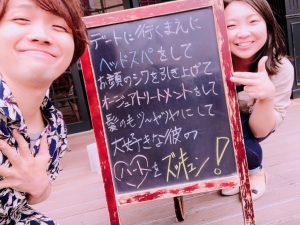 デートに行くまえに
ヘッドスパをして
お顔のシワを引き上げて
オージュアトリートメントをして
髪の毛ツヤツヤにして
大好きな彼の
ハートをズッキュン!